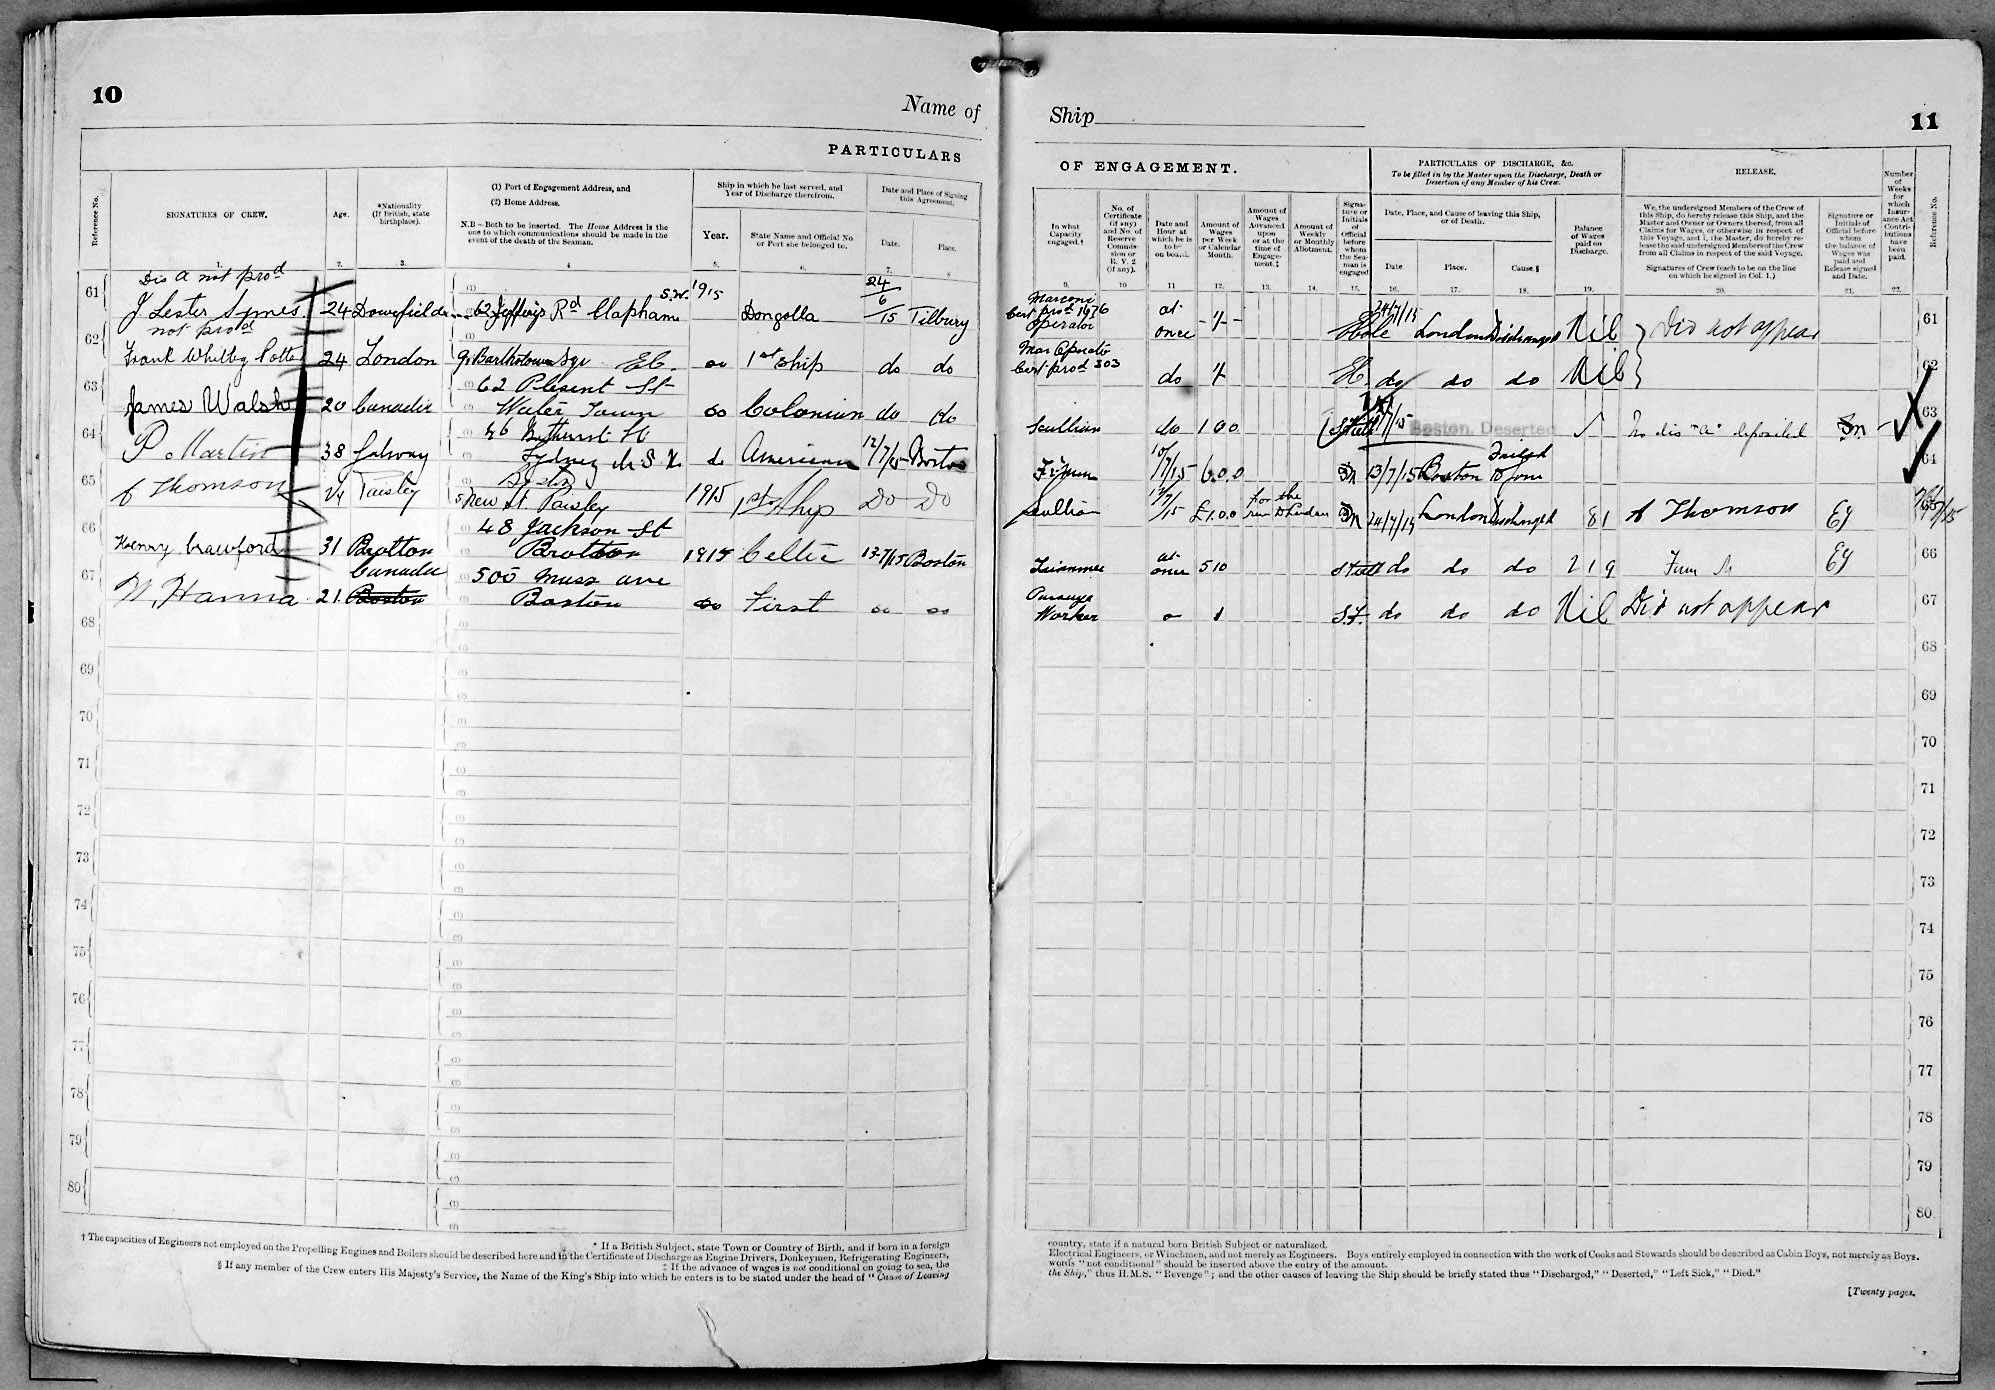 10
Name of
PARTICULARS
Reference No.
SIGNATURES OF CREW.
Age.
*Nationality
(If British, state
birthplace).
(1) Port of Engagement Address, and
(2) Home Address.
N.B—Both to be inserted. The Home Address is the
one to which communications should be made in the
event of the death of the Seaman.
Ship in which he last served, and
Year of Discharge therefrom.
Year.
State Name and Official No.
or Port she belonged to.
Date and Place of Signing
this Agreement.
Date.
Place.
1. 2. 3. 4 5. 6. 7. 8
Dis A not prod
61 J Lester Symes 24 62 Jeffreys Rd Clapham S.W. 1915 Dongolla 24/6/15 Tilbury
not prod
62 Frank Whitby Potter 24 London E.C. do 1st Ship do do
63 James Walsh 20 Canada 62 Plesent St
Water Town do Colonian do do
64 P. Martin 38 Galway 46 Bathurst St
Sydney N.S.W. do American 12/7/15 Boston
65 Thomson 24 Paisley 5 New St. Paisley 1915 1st Ship Do Do
66 Henry Crawford 31 Brotton 48 Jackson St
Brotton 1915 Celtic 12-7/15 Boston
67 W. Hanna 21 Canada Boston 500 Mass ave
Boston do First do do
68
69
70
71
72
73
74
75
76
77
78
79
80
† The capacities of Engineers not employed on the Propelling Engines and Boilers should be described here and in the Certificate of Discharge as Engine Drivers, Donkeymen, Refrigerating Engineers,
* If a British Subject, state Town or Country of Birth, and if born in a foreign
‡ If the advance of wages is not conditional on going to sea, the
§ If any member of the Crew enters His Majesty's Service, the Name of the King's Ship into which he enters is to be stated under the head of "Cause of Leaving
Ship
11
OF ENGAGEMENT.
PARTICULARS OF DISCHARGE, &c.
To be filled in by the Master upon the Discharge, Death or
Desertion of any Member of his Crew.
RELEASE.
In what
Capacity
engaged.†
No. of
Certificate
(if any)
and No. of
Reserve
Commis-
sion or
R. V. 2
(if any).
Date and
Hour at
which he is
to be
on board.
Amount of
Wages
per Week
or Calendar
Month.
Amount of
Wages
Advanced
upon
or at the
time of
Engage-
ment.‡
Amount of
Weekly
or Monthly
Allotment.
Signa-
ture or
Initials
of
Official
before
whom
the Sea-
man is
engaged
Date, Place, and Cause of leaving this Ship,
or of Death.
Date.
Place.
Cause.§
Balance
of Wages
paid on
Discharge.
We, the undersigned Members of the Crew of
this Ship, do hereby release this Ship, and the
Master and Owner or Owners thereof, from all
Claims for Wages, or otherwise in respect of
this Voyage, and I, the Master, do hereby re-
lease the said undersigned Members of the Crew
from all Claims in respect of the said Voyage.
Signatures of Crew (each to be on the line
on which he signed in Col. 1.)
Signature or
Initials of
Official before
whom
the balance of
Wages was
paid and
Release signed
and Date.
Number
of
Weeks
for
which
Insur-
ance Act
Contri-
butions
have
been
paid.
Reference No.
9. 10 11 12. 13. 14. 15. 16. 17. 18. 19. 20. 21. 22.
Marconi
Cert prod 1976
Operator at once 24/7/15 London Discharged Nil Did not appear 61
Mar Operator
Cert prod 303 do do do do Nil 62
Scullion do 1 0 0 Boston. Deserted No dis "A" deposited 63
10/7/15 6.0.0 13/7/15 Boston Failed to join 64
Scullion 12/7/15 £1.0.0 for the run to London 24/7/15 London Discharged 8 1 A Thomson 65
at once 5 10 do do do 2 1 9 66
Worker 1 S.F. do do do Nil Did not appear 67
68
69
70
71
72
73
74
75
76
77
78
79
80
country, state if a natural born British Subject or naturalized.
Electrical Engineers, or Winchmen, and not merely as Engineers. Boys entirely employed in connection with the work of Cooks and Stewards should be described as Cabin Boys, not merely as Boys.
words "not conditional" should be inserted above the entry of the amount.
the Ship," thus H.M.S. "Revenge"; and the other causes of leaving the Ship should be briefly stated thus "Discharged," "Deserted," "Left Sick," "Died."
[Twenty pages.